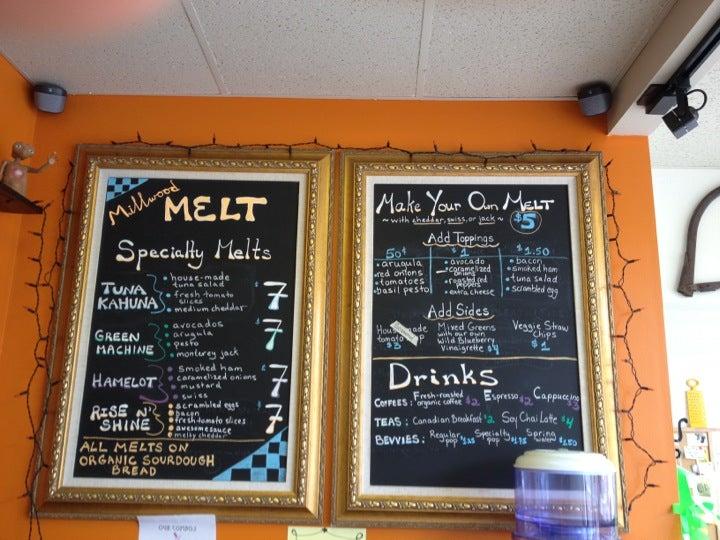 Millwood
MELT
Specialty Melts
TUNA
KAHUNA
• house-made
tuna salad
• fresh tomato
slices
• medium cheddar
$7
GREEN
MACHINE
• avocados
• arugula
• pesto
• monterey jack
$7
HAMELOT
• smoked ham
• caramelized onions
• mustard
• swiss
$7
RISE N'
SHINE
• scrambled eggs
• bacon
• fresh tomato slices
• awesome sauce
• melty cheddar
$7
ALL MELTS ON
ORGANIC SOURDOUGH
BREAD
MAKE YOUR OWN MELT
~ with cheddar, swiss, or jack ~
$5
Add Toppings
50¢
• arugula
• red onions
• tomatoes
• basil pesto
$1
• avocado
• caramelized
onions
• roasted red
peppers
• extra cheese
$1.50
• bacon
• smoked ham
• tuna salad
• scrambled egg
Add Sides
tomato
$3
Mixed Greens
with our own
Wild Blueberry
Vinaigrette $4
Veggie Straw
Chips
$1
Drinks
COFFEES: Fresh-roasted
organic coffee $2 Espresso $2 Cappuccino $3
TEAS: Canadian Breakfast $2 Soy Chai Latte $4
BEVVIES: Regular
pop $1.25 Specialty
pop $1.75 Spring
water $1.50